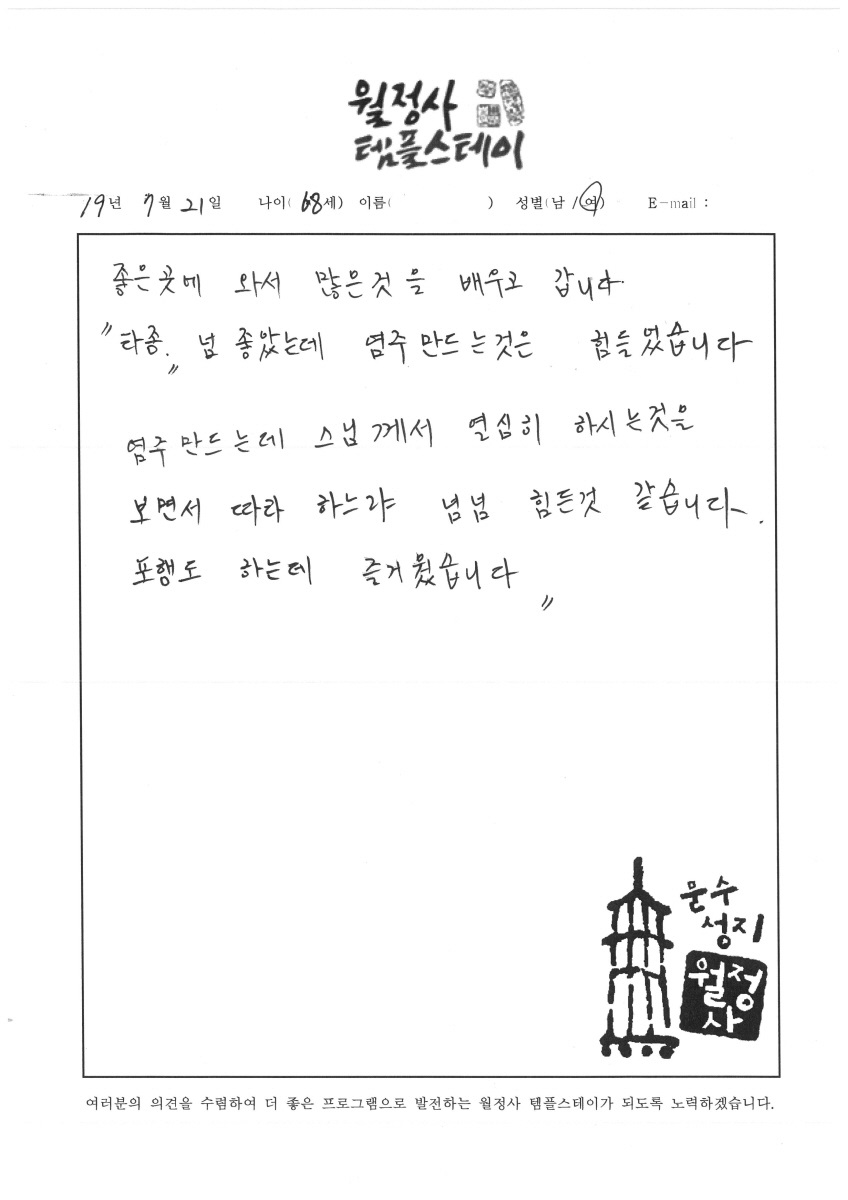 월정사
템플스테이
19년 7월 21일 나이(68세) 이름( ) 성별(남/여) E-mail :
좋은곳에 와서 많은것을 배우고 갑니다.
"타종." 넘 좋았는데 염주 만드는것은 힘들었습니다
염주 만드는데 스님께서 열심히 하시는것을
보면서 따라 하느라 넘넘 힘든것 같습니다.
포행도 하는데 즐거웠습니다 "
문수
성지
월정
사
여러분의 의견을 수렴하여 더 좋은 프로그램으로 발전하는 월정사 템플스테이가 되도록 노력하겠습니다.